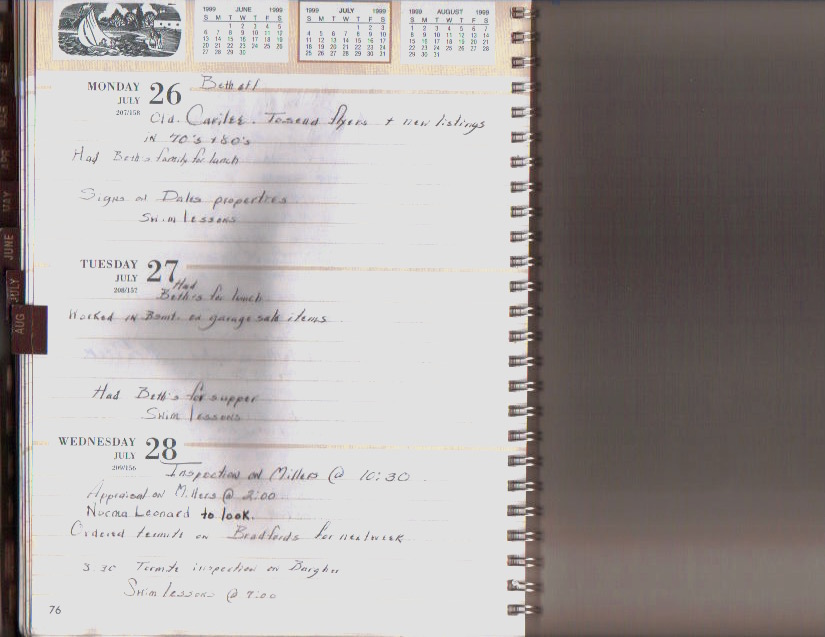 1999 JUNE 1999
S M T W T F S
1 2 3 4 5
6 7 8 9 10 11 12
13 14 15 16 17 18 19
20 21 22 23 24 25 26
27 28 29 30
1999 JULY 1999
S M T W T F S
1 2 3
4 5 6 7 8 9 10
11 12 13 14 15 16 17
18 19 20 21 22 23 24
25 26 27 28 29 30 31
1999 AUGUST 1999
S M T W T F S
1 2 3 4 5 6 7
8 9 10 11 12 13 14
15 16 17 18 19 20 21
22 23 24 25 26 27 28
29 30 31
MONDAY 26 Beth off
JULY
207/158
Old. To send flyers + new listings
in 70's + 80's
Had Beth's family for lunch
Signs on Dales properties
Swim lessons
TUESDAY 27
JULY
208/157
Had
Beth's for lunch
Worked in Bsmt. on garage sale items
Had Beth's for supper
Swim lessons
WEDNESDAY 28
JULY
209/156
Inspection on Millers @ 10:30
Appraisal on Millers @ 2:00
Norma Leonard to look.
Ordered termite on Bradfords for next week
3 30 Termite inspection on
Swim lessons @ 7:00
76
MAR
APR
MAY
JUNE
JULY
AUG